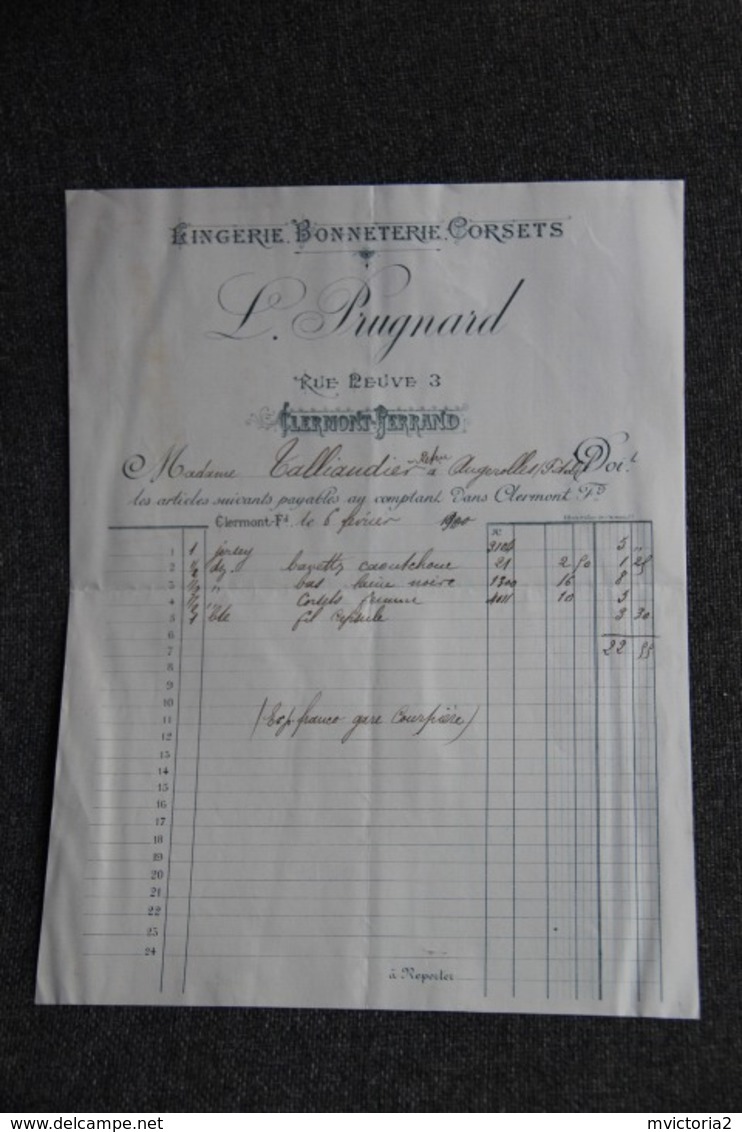 LINGERIE. BONNETERIE. CORSETS
L. Prugnard
RUE NEUVE 3
CLERMONT-FERRAND
Madame Talliandier à Augerolles Doit
les articles suivants payables au comptant dans Clermont Fd
Clermont-Fd le 6 février 1900
1 1 jersey 5 "
2 1/2 dz caoutchouc 21 2 50 1 25
3 1/2 " bas laine noire 1300 16 8
4 Corsets femme 10 5
5 1 Bte fil 3 30
6
7 22 55
8
9
10
11 (Exp. franco gare Courpière)
12
13
14
15
16
17
18
19
20
21
22
23
24
à Reporter
delcampe.net
mvictoria2